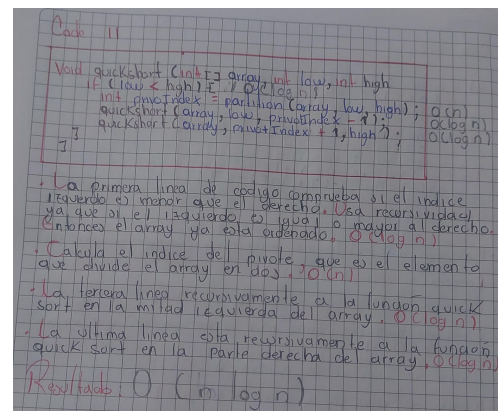 Code 11
Void quickshort (int[] array, int low, int high
if (low < high) { // O(log n)
int privoIndex = partition (array, low, high); O(n)
quickshort (array, low, privoIndex - 1); O(log n)
quickshort (array, privotIndex + 1, high); O(log n)
}
}
. La primera linea de codigo comprueba si el indice
izquierdo es menor que el derecho. Usa recursividad,
ya que si el izquierdo es igual o mayor al derecho.
Entonces el array ya esta ordenado. O(log n)
. Calcula el indice del pivote, que es el elemento
que divide el array en dos. O(n)
. La tercera linea recursivamente a la fungon quick
sort en la mitad izquierda del array. O(log n)
. La ultima linea esta recursivamente a la fungon
quick sort en la parte derecha de array. O(log n)
Resultado: O (n log n)